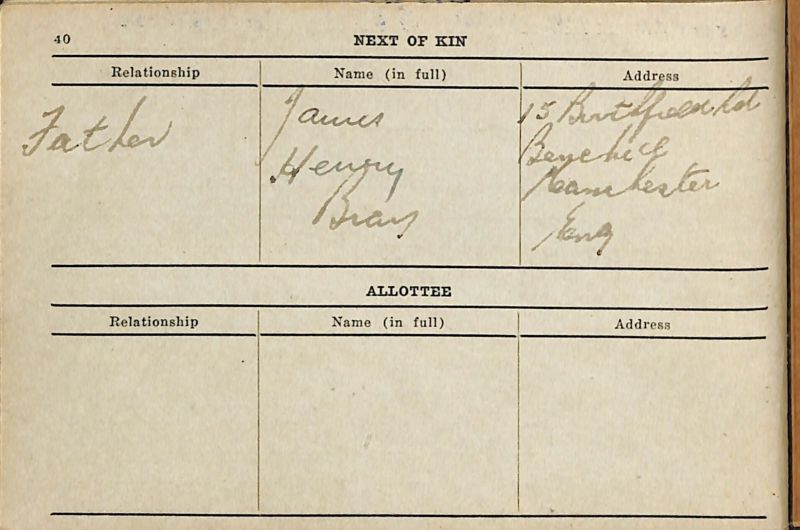 40
NEXT OF KIN
Relationship Name (in full) Address
Father James 15 Rd
Henry
Manchester
Bray
Eng
ALLOTTEE
Relationship Name (in full) Address